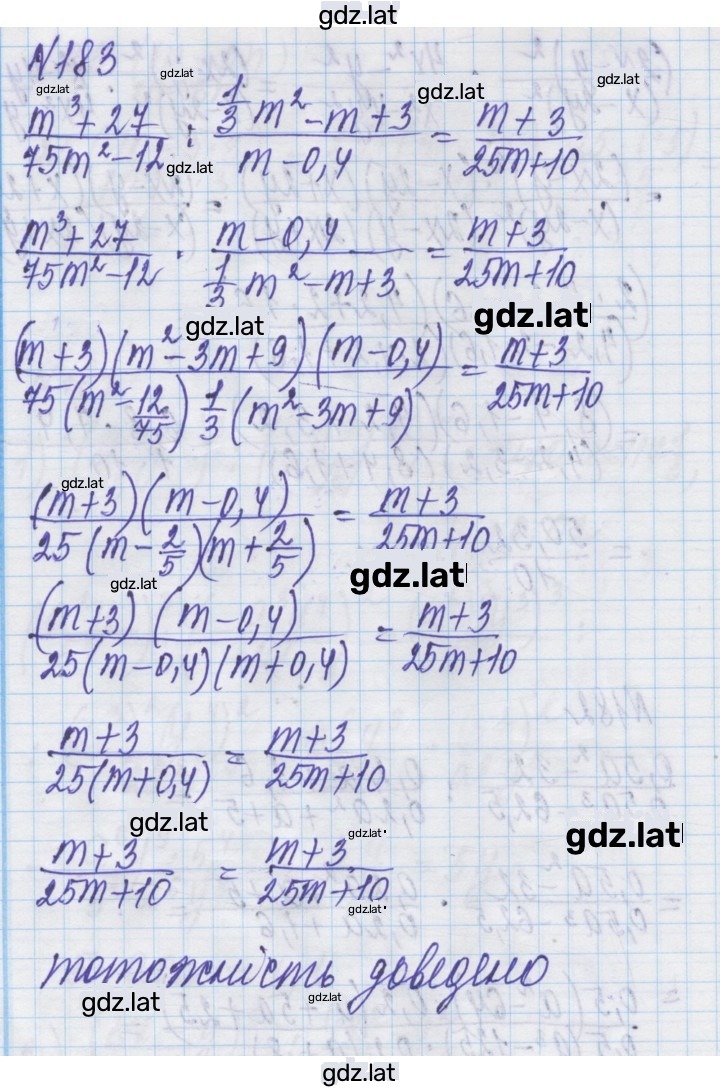 gdz.lat
N183
gdz.lat
gdz.lat
gdz.lat
gdz.lat
(m³+27)/(75m²-12) : (1/3 m²-m+3)/(m-0,4) = (m+3)/(25m+10)
gdz.lat
(m³+27)/(75m²-12) · (m-0,4)/(1/3 m²-m+3) = (m+3)/(25m+10)
gdz.lat
gdz.lat
((m+3)(m²-3m+9)(m-0,4))/(75(m²-12/75) 1/3 (m²-3m+9)) = (m+3)/(25m+10)
gdz.lat
((m+3)(m-0,4))/(25(m-2/5)(m+2/5)) = (m+3)/(25m+10)
gdz.lat
gdz.lat
((m+3)(m-0,4))/(25(m-0,4)(m+0,4)) = (m+3)/(25m+10)
(m+3)/(25(m+0,4)) = (m+3)/(25m+10)
gdz.lat
gdz.lat
gdz.lat
(m+3)/(25m+10) = (m+3)/(25m+10)
gdz.lat
тотожність доведено
gdz.lat
gdz.lat
gdz.lat